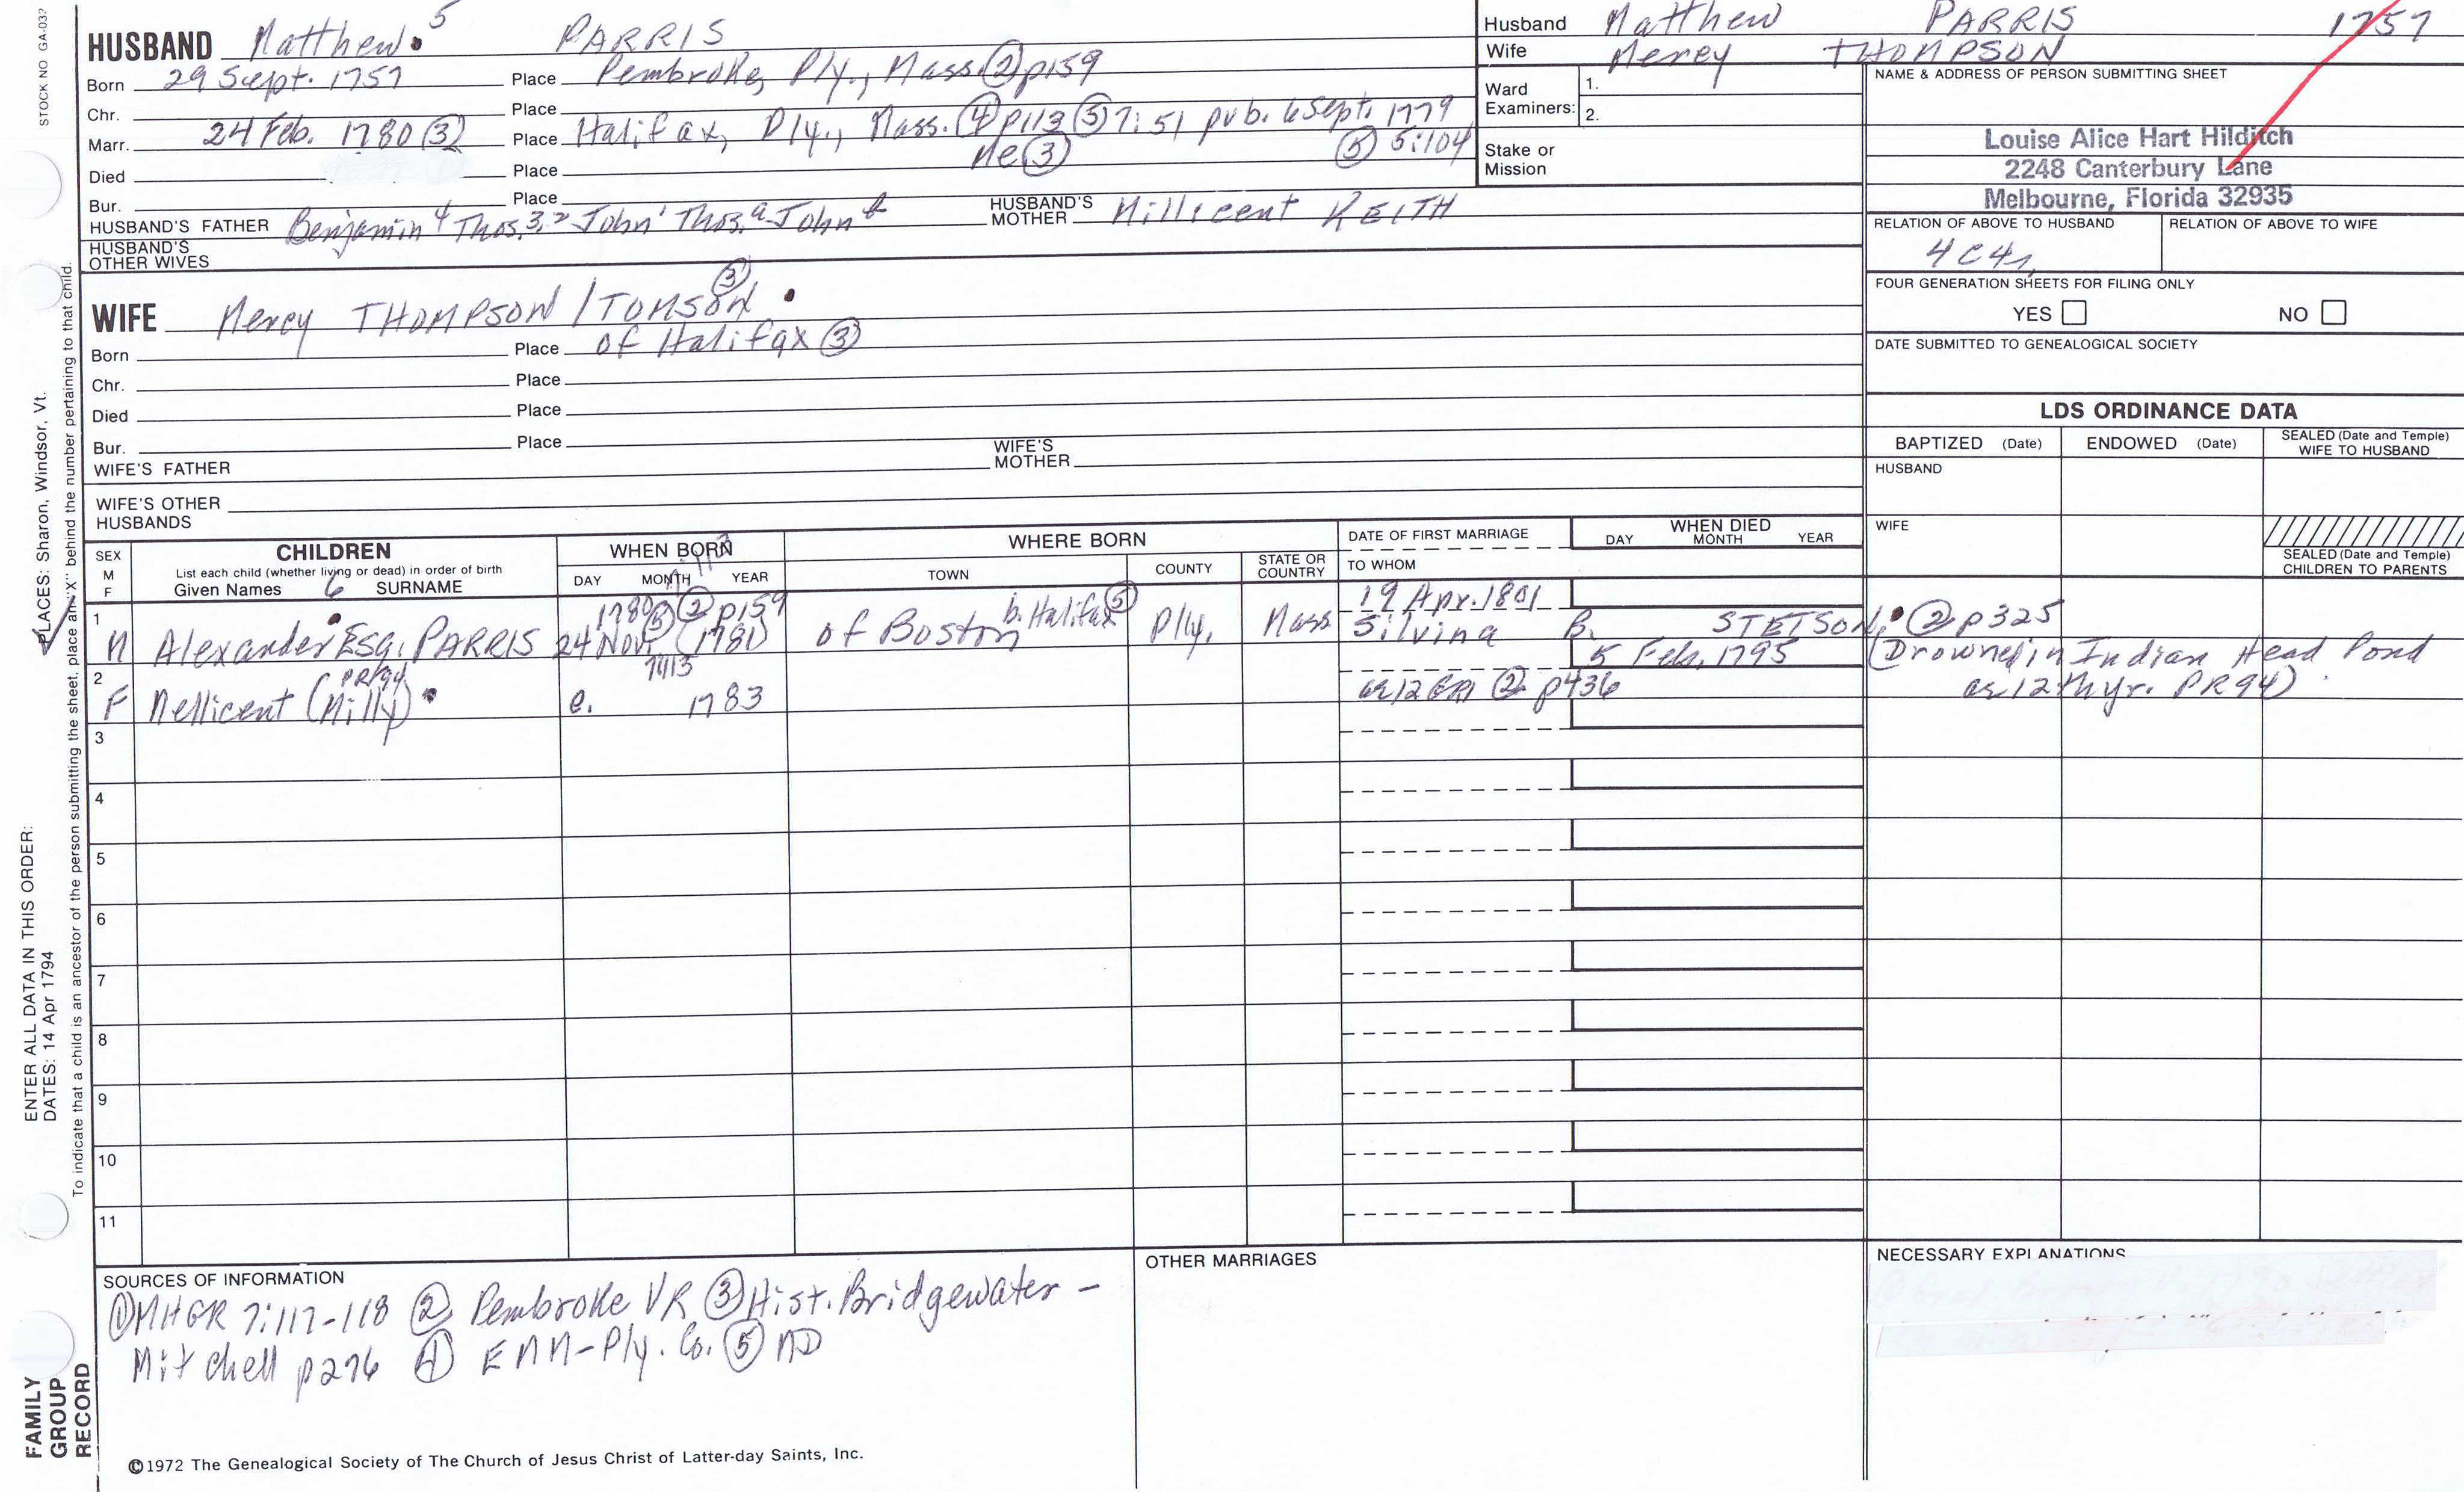 STOCK NO GA-032
HUSBAND Matthew 5 PARRIS
Born 29 Sept. 1757 Place Pembroke, Ply., Mass. ② p159
Chr. Place
Marr. 24 Feb. 1780 ③ Place Halifax, Ply., Mass. ④ p113 ③ 7:51 pub. 6 Sept. 1779
Died Place Me ③ ⑤ 5:104
Bur. Place
HUSBAND'S FATHER Benjamin 4 Thos. 3, 2 John 1 Thos. a John b HUSBAND'S MOTHER Millicent KEITH
HUSBAND'S OTHER WIVES
Husband Matthew PARRIS 1757
Wife Mercy THOMPSON
Ward Examiners: 1.
2.
Stake or Mission
NAME & ADDRESS OF PERSON SUBMITTING SHEET
Louise Alice Hart Hilditch
2248 Canterbury Lane
Melbourne, Florida 32935
RELATION OF ABOVE TO HUSBAND RELATION OF ABOVE TO WIFE
4C4r
FOUR GENERATION SHEETS FOR FILING ONLY
YES NO
DATE SUBMITTED TO GENEALOGICAL SOCIETY
WIFE Mercy THOMPSON / TOMSON ③
Born Place of Halifax ③
Chr. Place
Died Place
Bur. Place
WIFE'S FATHER WIFE'S MOTHER
WIFE'S OTHER HUSBANDS
LDS ORDINANCE DATA
BAPTIZED (Date) ENDOWED (Date) SEALED (Date and Temple) WIFE TO HUSBAND
HUSBAND
WIFE
SEALED (Date and Temple) CHILDREN TO PARENTS
SEX M F
CHILDREN
List each child (whether living or dead) in order of birth
Given Names 6 SURNAME
WHEN BORN
DAY MONTH YEAR
WHERE BORN
TOWN COUNTY STATE OR COUNTRY
DATE OF FIRST MARRIAGE
TO WHOM
WHEN DIED
DAY MONTH YEAR
1 1780 ③ ② p159 b. Halifax ⑤ 19 Apr. 1801
M Alexander Esq. PARRIS 24 Nov. (1781) of Boston Ply. Mass Silvina B. STETSON ② p325
2 PR94 7:113 5 Feb. 1795 (Drowned in Indian Head Pond
F Mellicent (Milly) c. 1783 ae 12 GR1 ② p436 ae 12th yr. PR94)
3
4
5
6
7
8
9
10
11
SOURCES OF INFORMATION
① MHGR 7:117-118 ② Pembroke VR ③ Hist. Bridgewater -
Mitchell p276 ④ EMM-Ply. Co. ⑤ MD
OTHER MARRIAGES
NECESSARY EXPLANATIONS
©1972 The Genealogical Society of The Church of Jesus Christ of Latter-day Saints, Inc.
ENTER ALL DATA IN THIS ORDER:
DATES: 14 Apr 1794
PLACES: Sharon, Windsor, Vt.
To indicate that a child is an ancestor of the person submitting the sheet, place an "X" behind the number pertaining to that child.
FAMILY
GROUP
RECORD